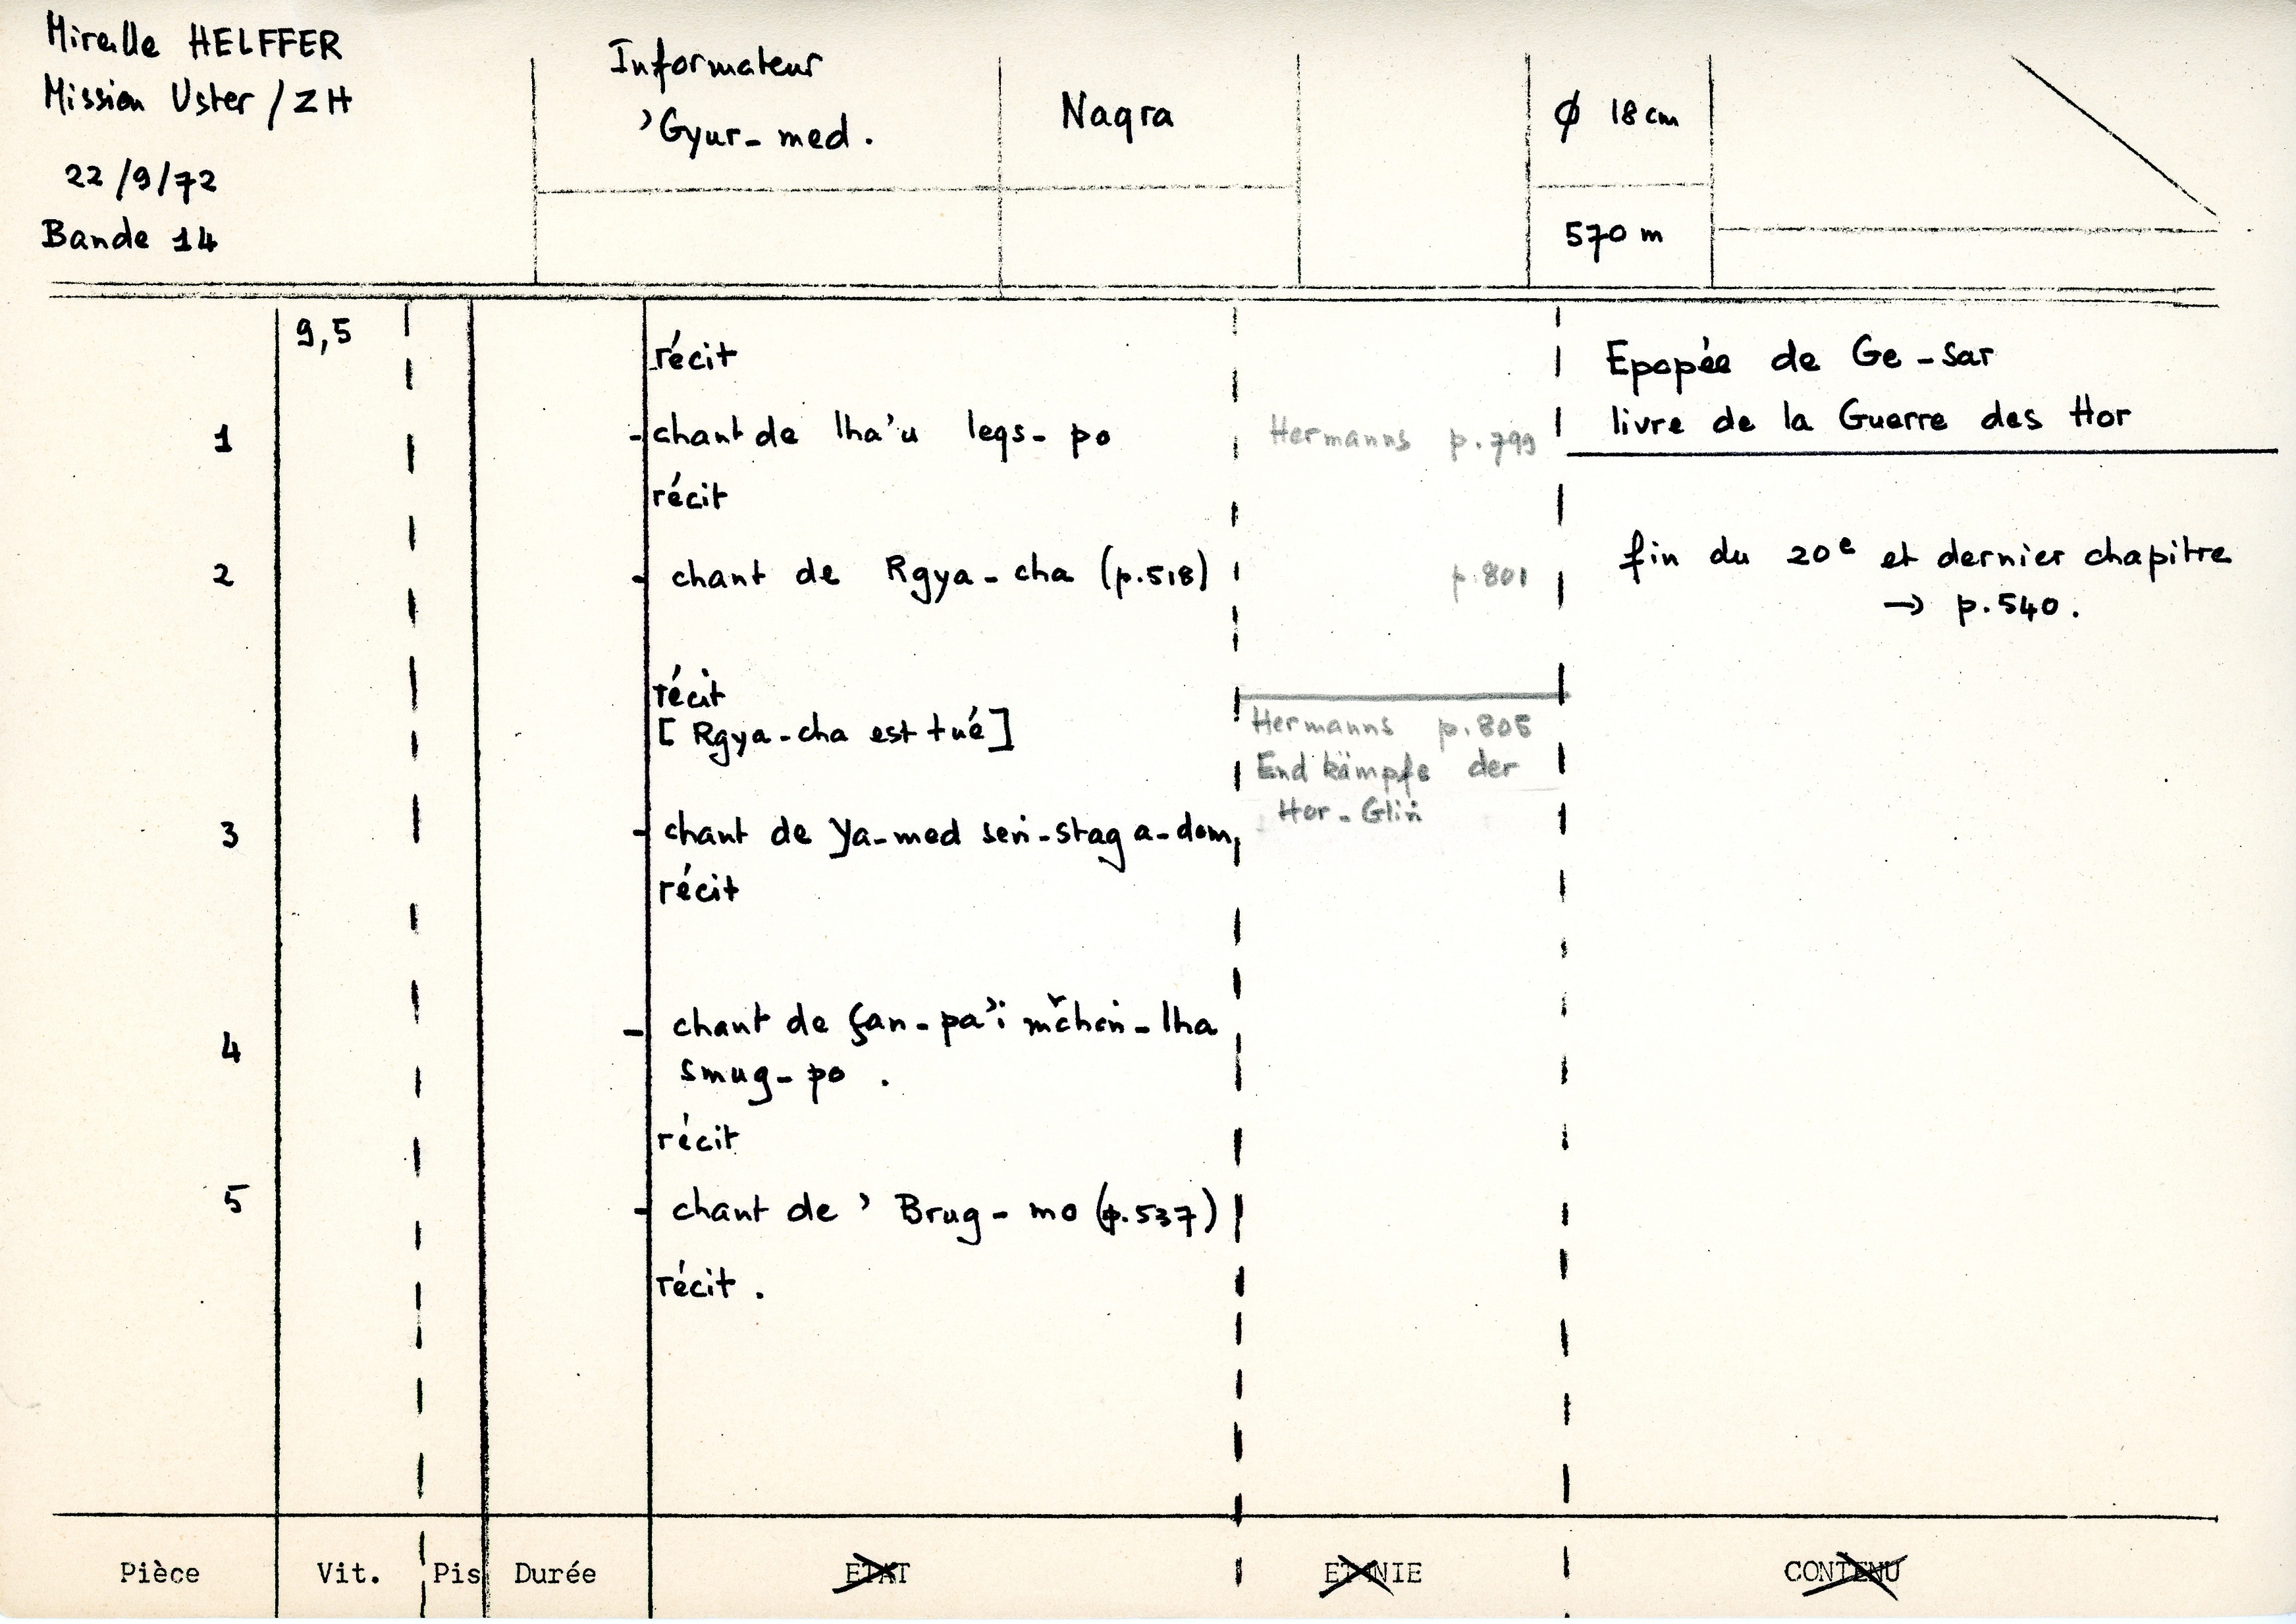 Mireille HELFFER
Mission Uster / ZH
22/9/72
Bande 14
Informateur
'Gyur-med.
Nagra
ϕ 18 cm
570 m
9,5
récit
Epopée de Ge-sar
livre de la Guerre des Hor
1 - chant de lha'u legs-po Hermanns p.799
récit
2 - chant de Rgya-cha (p.518) p.801
fin du 20e et dernier chapitre
→ p.540.
récit
[Rgya-cha est tué]
Hermanns p.805
Endkämpfe der
Hor-Gliṅ
3 - chant de Ya-med seṅ-stag a-dom,
récit
4 - chant de çan-pa'i mčhin-lha
smug-po.
récit
5 - chant de 'Brug-mo (p.537)
récit.
Pièce Vit. Pis Durée ETAT ETHNIE CONTENU